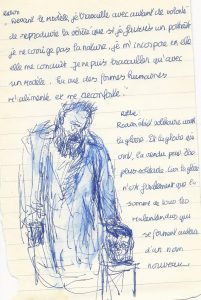 Rodin
"Devant le modèle, je travaille avec autant de volonté
de reproduire la vérité que si je faisais un portrait
je ne corrige pas la nature, je m'incorpore en elle
elle me conduit. Je ne puis travailler qu'avec
un modèle. La vue des formes humaines
m'alimente et me réconforte."
Rilke:
Rodin était solitaire avant
sa gloire. Et la gloire qui
vint, l'a rendu peut-être
plus solitaire. Car la gloire
n'est finalement que la
somme de tous les
malentendus qui
se forment autour
d'un nom
nouveau